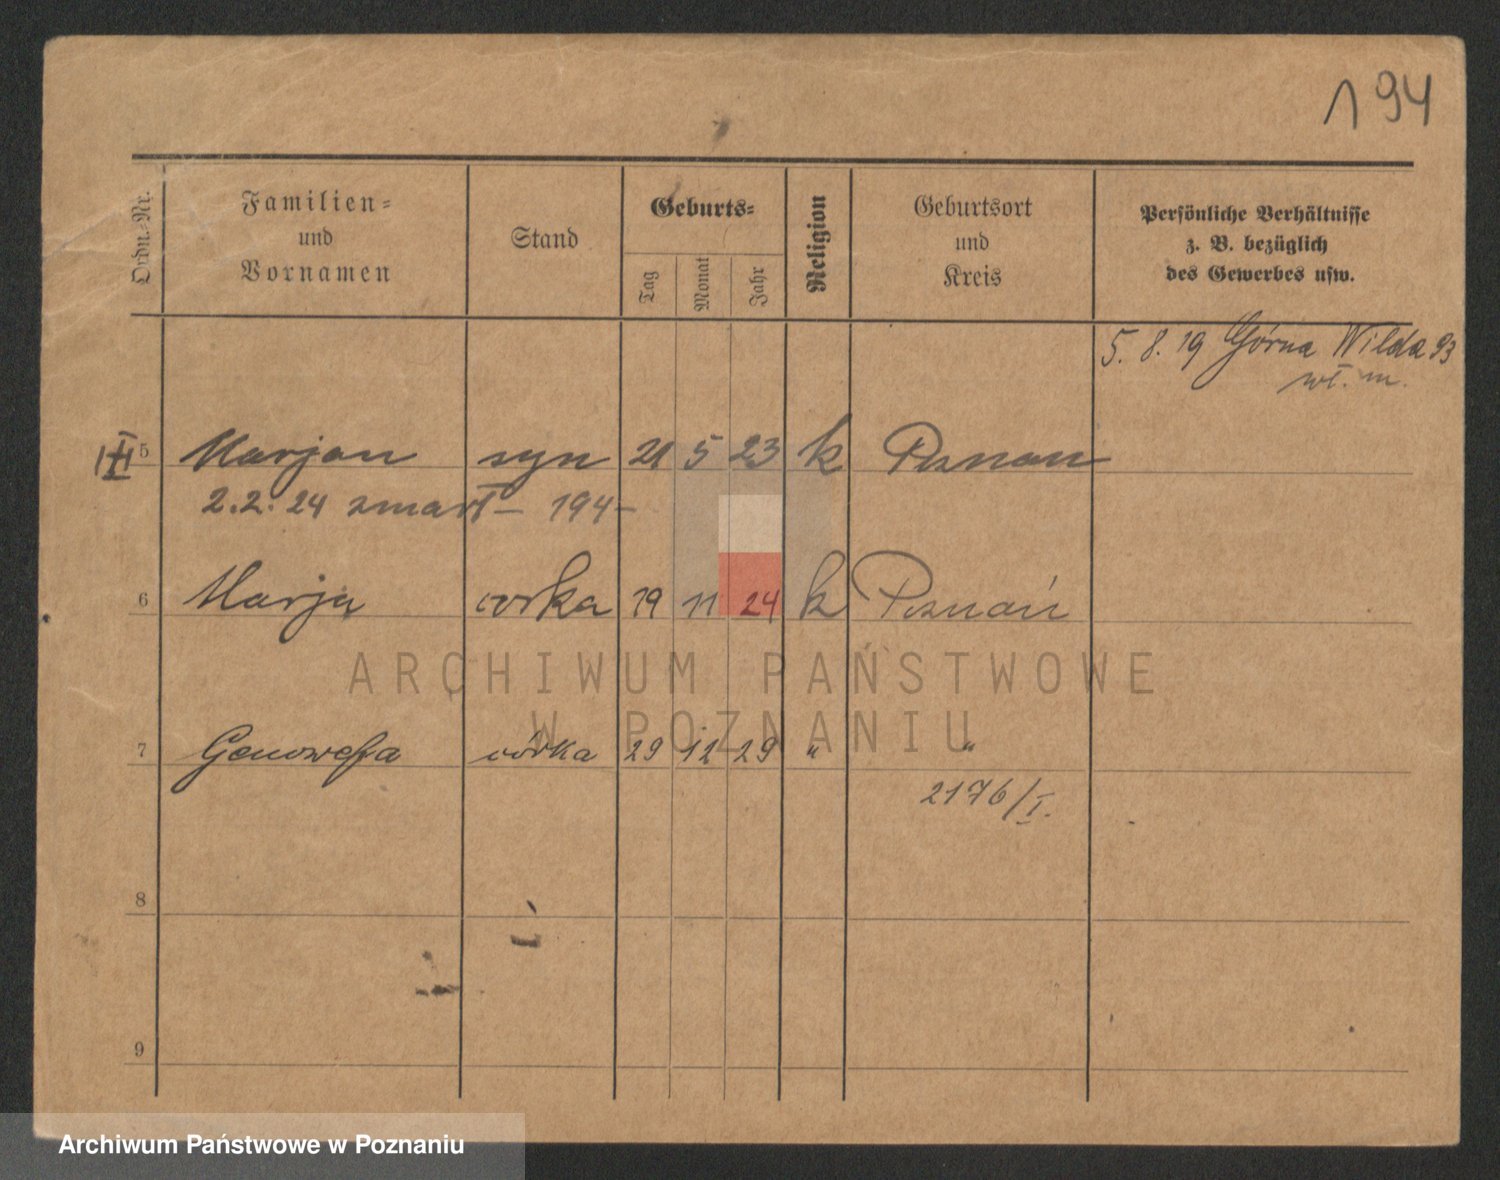 194
Ordn.-Nr.
Familien-
und
Vornamen
Stand
Geburts-
Tag
Monat
Jahr
Religion
Geburtsort
und
Kreis
Persönliche Verhältnisse
z. B. bezüglich
des Gewerbes usw.
5. 8. 19 Górna Wilda 93
wł. m.
5 Marjan syn 21 5 23 k Poznań
2.2.24 zmarł – 194 –
6 Marja córka 19 11 24 k Poznań
ARCHIWUM PAŃSTWOWE
W POZNANIU
7 Genowefa córka 29 12 29 " "
2176/I.
8
9
Archiwum Państwowe w Poznaniu